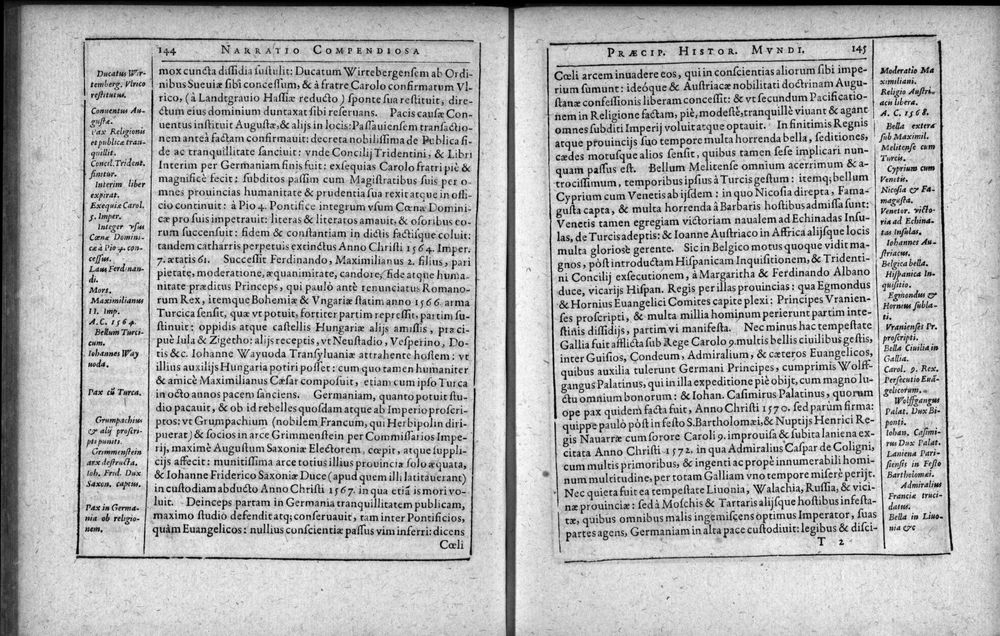 144 NARRATIO COMPENDIOSA
mox cuncta dissidia sustulit: Ducatum Wirtebergensem ab Ordi-
nibus Sueuiæ sibi concessum, & à fratre Carolo confirmatum Vl-
rico, (à Landtgrauio Hassiæ reducto) sponte sua restituit, dire-
ctum eius dominium duntaxat sibi reseruans. Pacis causæ Con-
uentus instituit Augustæ, & alijs in locis: Passauiensem transactio-
nem anteà factam confirmauit: decreta nobilissima de Publica fi-
de ac tranquillitate sanciuit: vnde Concilij Tridentini, & Libri
Interim per Germaniam finis fuit: exsequias Carolo fratri piè &
magnificè fecit: subditos passim cum Magistratibus suis per o-
mnes prouincias humanitate & prudentia sua rexit atque in offi-
cio continuit: à Pio 4. Pontifice integrum vsum Cœnæ Domini-
cæ pro suis impetrauit: literas & literatos amauit, & osoribus eo-
rum succensuit: fidem & constantiam in dictis factisque coluit:
tandem catharris perpetuis extinctus Anno Christi 1564. Imper.
7. ætatis 61. Successit Ferdinando, Maximilianus 2. filius, pari
pietate, moderatione, æquanimitate, candore, fide atque huma-
nitate præditus Princeps, qui paulò antè renunciatus Romano-
rum Rex, itemque Bohemiæ & Vngariæ statim anno 1566 arma
Turcica sensit, quæ vt potuit, fortiter partim repressit, partim su-
stinuit: oppidis atque castellis Hungariæ alijs amissis, præci-
puè Iula & Zigetho: alijs receptis, vt Neustadio, Vesperino, Do-
tis &c. Iohanne Wayuoda Transyluaniæ attrahente hostem: vt
illius auxilijs Hungaria potiri posset: cum quo tamen humaniter
& amicè Maximilianus Cæsar composuit, etiam cum ipso Turca
in octo annos pacem sanciens. Germaniam, quanto potuit stu-
dio pacauit, & ob id rebelles quosdam atque ab Imperio proscri-
ptos: vt Grumpachium (nobilem Francum, qui Herbipolin diri-
puerat) & socios in arce Grimmenstein per Commissarios Impe-
rij, maximè Augustum Saxoniæ Electorem, cœpit, atque suppli-
cijs affecit: munitissima arce totius illius prouinciæ solo æquata,
& Iohanne Friderico Saxoniæ Duce (apud quem illi latitauerant)
in custodiam abducto Anno Christi 1567. in qua etiā is mori vo-
luit. Deinceps partam in Germania tranquillitatem publicam,
maximo studio defendit atq; conseruauit, tam inter Pontificios,
quàm Euangelicos: nullius conscientiæ passus vim inferri: dicens
Cœli
Ducatus Wir-
temberg. Vlrico
restitutus.
Conuentus Au-
gustæ.
Pax Religionis
et publicæ tran-
quillit.
Concil. Trident.
finitur.
Interim liber
expirat.
Exequiæ Carol.
5. Imper.
Integer vsus
Cœnæ Domini-
cæ à Pio 4. con-
cessus.
Laus Ferdinan-
di.
Mors.
Maximilianus
II. Imp.
A. C. 1564.
Bellum Turci-
cum.
Iohannes Way
uoda.
Pax cū Turca.
Grumpachius
& alij proscri-
pti puniti.
Grimmenstein
arx destructa.
Ioh. Frid. Dux
Saxon. captus.
Pax in Germa-
nia ob religio-
nem.
PRÆCIP. HISTOR. MVNDI. 145
Cœli arcem inuadere eos, qui in conscientias aliorum sibi impe-
rium sumunt: ideóque & Austriacæ nobilitati doctrinam Augu-
stanæ confessionis liberam concessit: & vt secundum Pacificatio-
nem in Religione factam, piè, modestè, tranquillè viuant & agant
omnes subditi Imperij voluit atque optauit. In finitimis Regnis
atque prouincijs suo tempore multa horrenda bella, seditiones,
cædes motusque alios sensit, quibus tamen sese implicari nun-
quam passus est. Bellum Melitense omnium acerrimum & a-
trocissimum, temporibus ipsius à Turcis gestum: itemq; bellum
Cyprium cum Venetis ab ijsdem: in quo Nicosia direpta, Fama-
gusta capta, & multa horrenda à Barbaris hostibus admissa sunt:
Venetis tamen egregiam victoriam naualem ad Echinadas Insu-
las, de Turcis adeptis: & Ioanne Austriaco in Africa alijsque locis
multa gloriosè gerente. Sic in Belgico motus quoque vidit ma-
gnos, pòst introductam Hispanicam Inquisitionem, & Tridenti-
ni Concilij exsecutionem, à Margaritha & Ferdinando Albano
duce, vicarijs Hispan. Regis per illas prouincias: qua Egmondus
& Hornius Euangelici Comites capite plexi: Principes Vranien-
ses proscripti, & multa millia hominum perierunt partim inte-
stinis dissidijs, partim vi manifesta. Nec minus hac tempestate
Gallia fuit afflicta sub Rege Carolo 9. multis bellis ciuilibus gestis,
inter Guisios, Condeum, Admiralium, & cæteros Euangelicos,
quibus auxilia tulerunt Germani Principes, cumprimis Wolff-
gangus Palatinus, qui in illa expeditione piè obijt, cum magno lu-
ctu omnium bonorum: & Iohan. Casimirus Palatinus, quorum
ope pax quidem facta fuit, Anno Christi 1570. sed parùm firma:
quippe paulò pòst in festo S. Bartholomæi, & Nuptijs Henrici Re-
gis Nauarræ cum sorore Caroli 9. improuisa & subita laniena ex-
citata Anno Christi 1572. in qua Admiralius Caspar de Coligni,
cum multis primoribus, & ingenti ac propè innumerabili homi-
num multitudine, per totam Galliam vno tempore miserè perijt.
Nec quieta fuit ea tempestate Liuonia, Walachia, Russia, & vici-
næ prouinciæ: sed à Moschis & Tartaris alijsque hostibus infesta-
tæ, quibus omnibus malis ingemiscens optimus Imperator, suas
partes agens, Germaniam in alta pace custodiuit: legibus & disci-
T 2
Moderatio Ma
ximiliani.
Religio Austri-
aca libera.
A. C. 1568.
Bella extera
sub Maximil.
Melitense cum
Turcis.
Cyprium cum
Venetis.
Nicosia & Fa-
magusta.
Venetor. victo-
ria ad Echina-
das Insulas.
Iohannes Au-
striacus.
Belgica bella.
Hispanica In-
quisitio.
Egmondus &
Horneus subla-
ti.
Vranienses Pr.
proscripti.
Bella Ciuilia in
Gallia.
Carol. 9. Rex.
Persecutio Euā-
gelicorum.
Wolffgangus
Palat. Dux Bi-
ponti.
Iohan. Casimi-
rus Dux Palat.
Laniena Pari-
siensis in Festo
Bartholomæi.
Admiralius
Franciæ truci-
datus.
Bella in Liuo-
nia &c